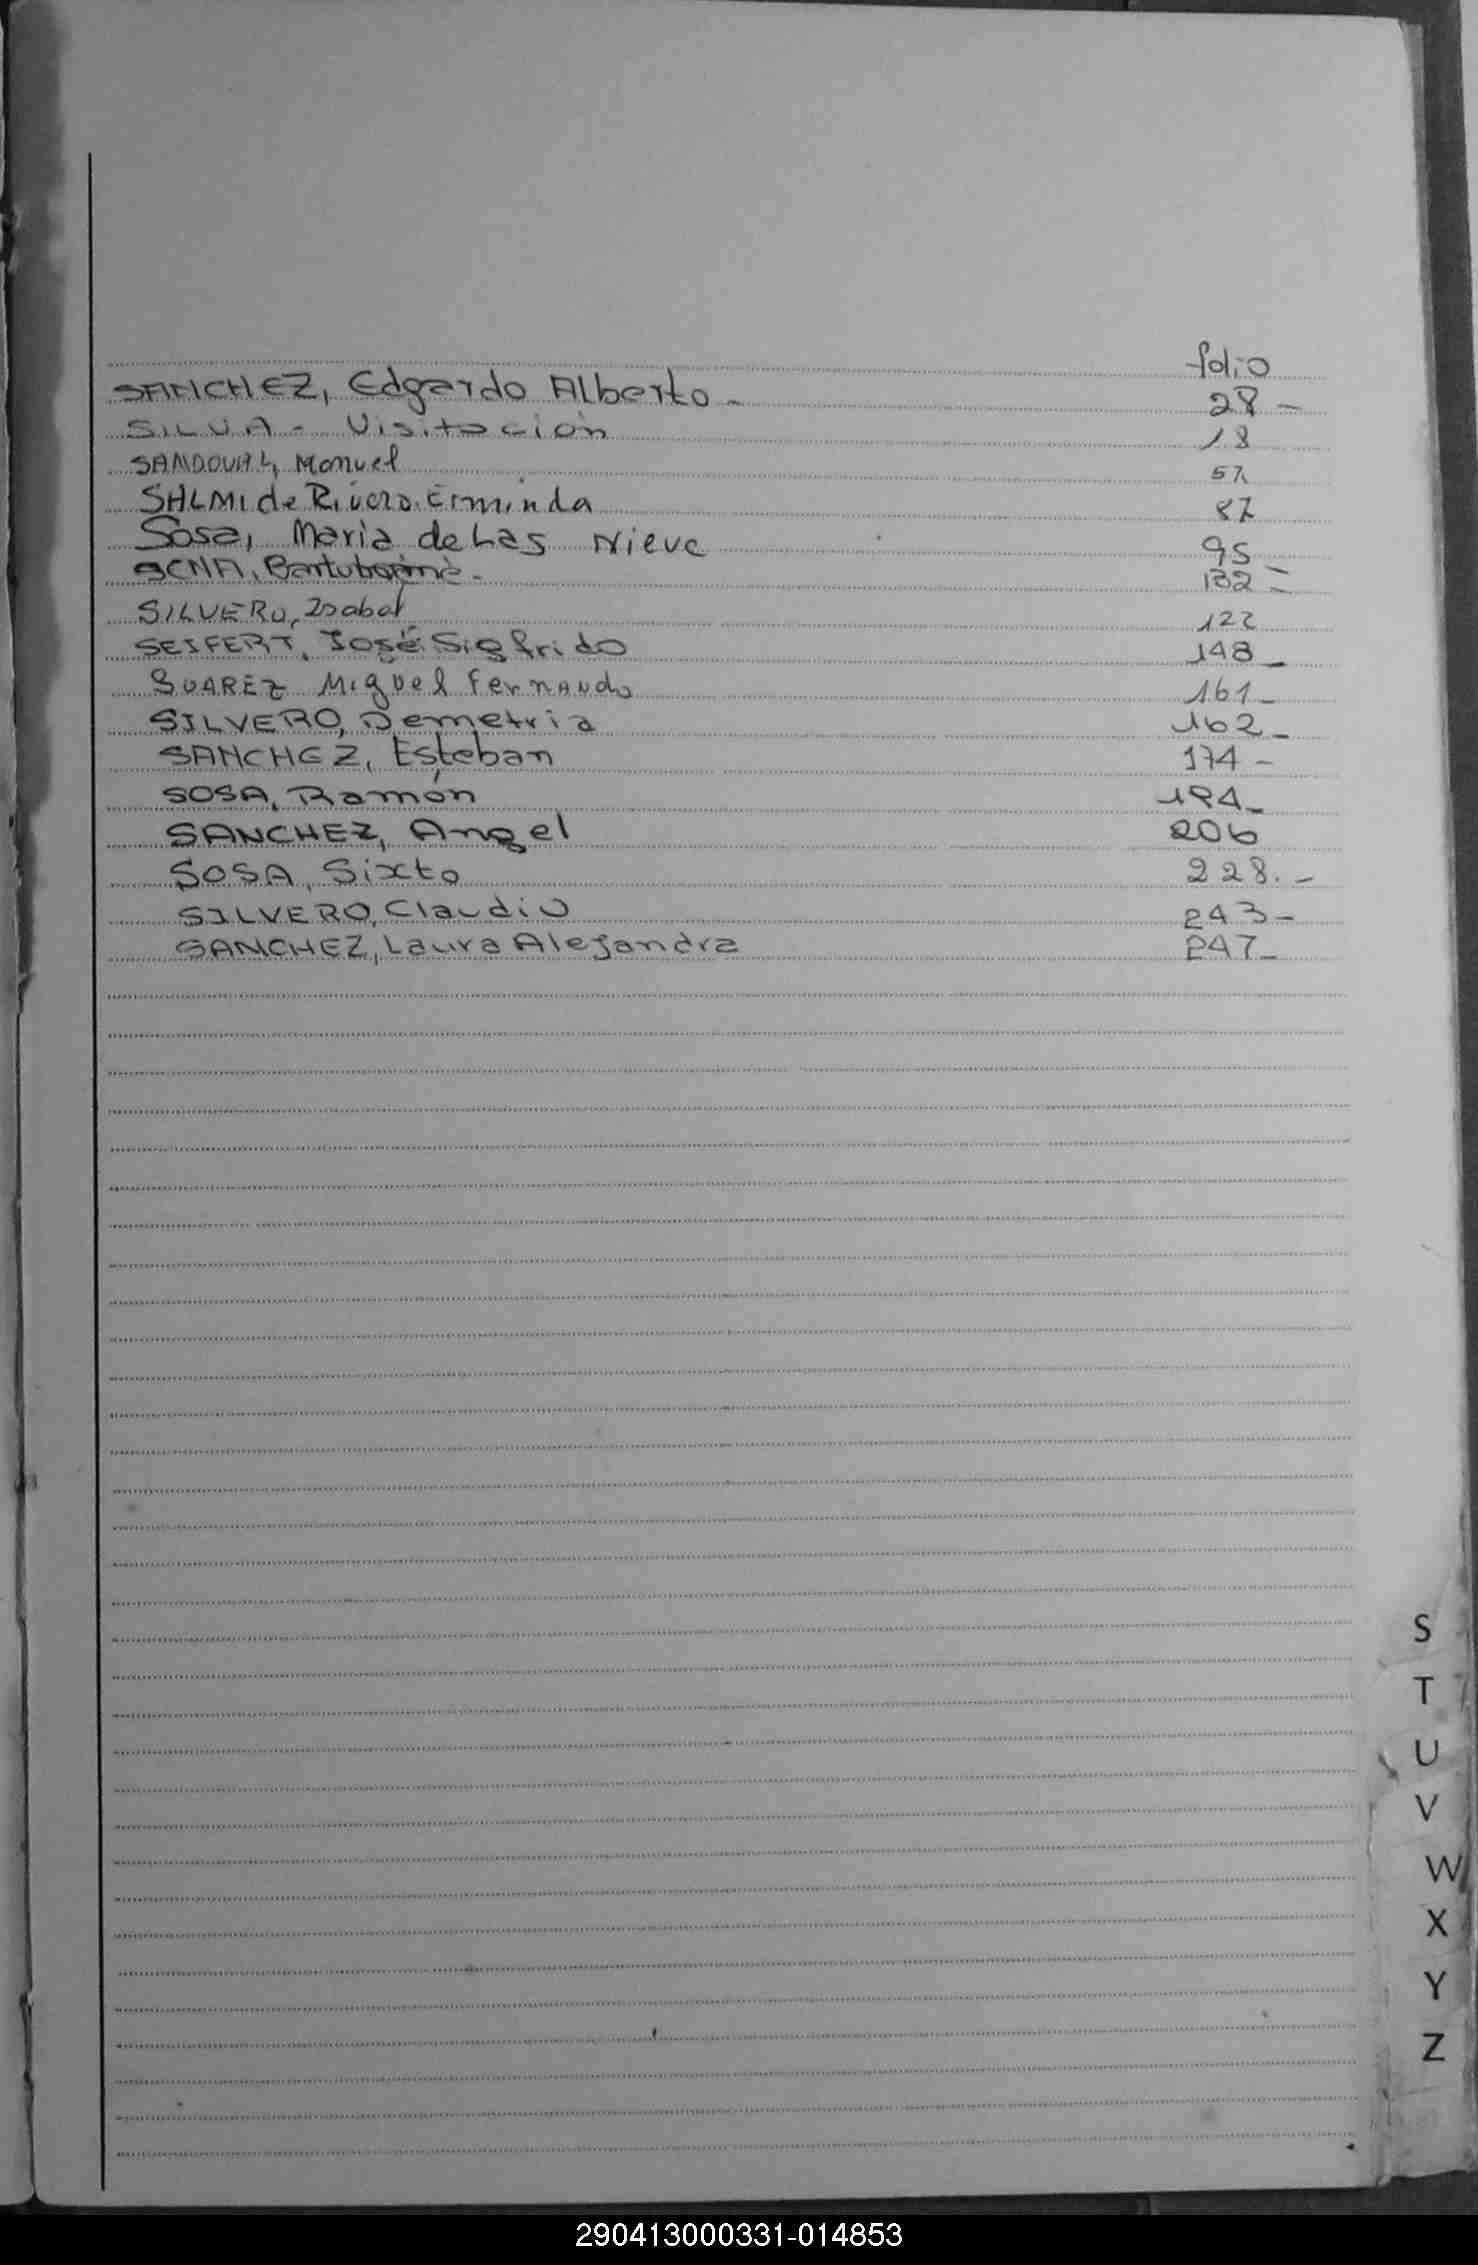 folio
SANCHEZ, Edgardo Alberto - 28 -
SILVA - Visitación 18
SANDOVAL, Manuel 57
SALMI de Rivero Erminda 87
Sosa, Maria de Las Nieve 95
SENA, 132 -
SILVERO, Isabel 122
SEIFERT, José Sigfrido 148 -
SUAREZ Miguel Fernando 161 -
SILVERO, Demetria 162 -
SANCHEZ, Esteban 174 -
SOSA, Ramón 194 -
SANCHEZ, Angel 206
SOSA, Sixto 228. -
SILVERO, Claudio 243 -
SANCHEZ, Laura Alejandra 247 -
S
T
U
V
W
X
Y
Z
290413000331-014853